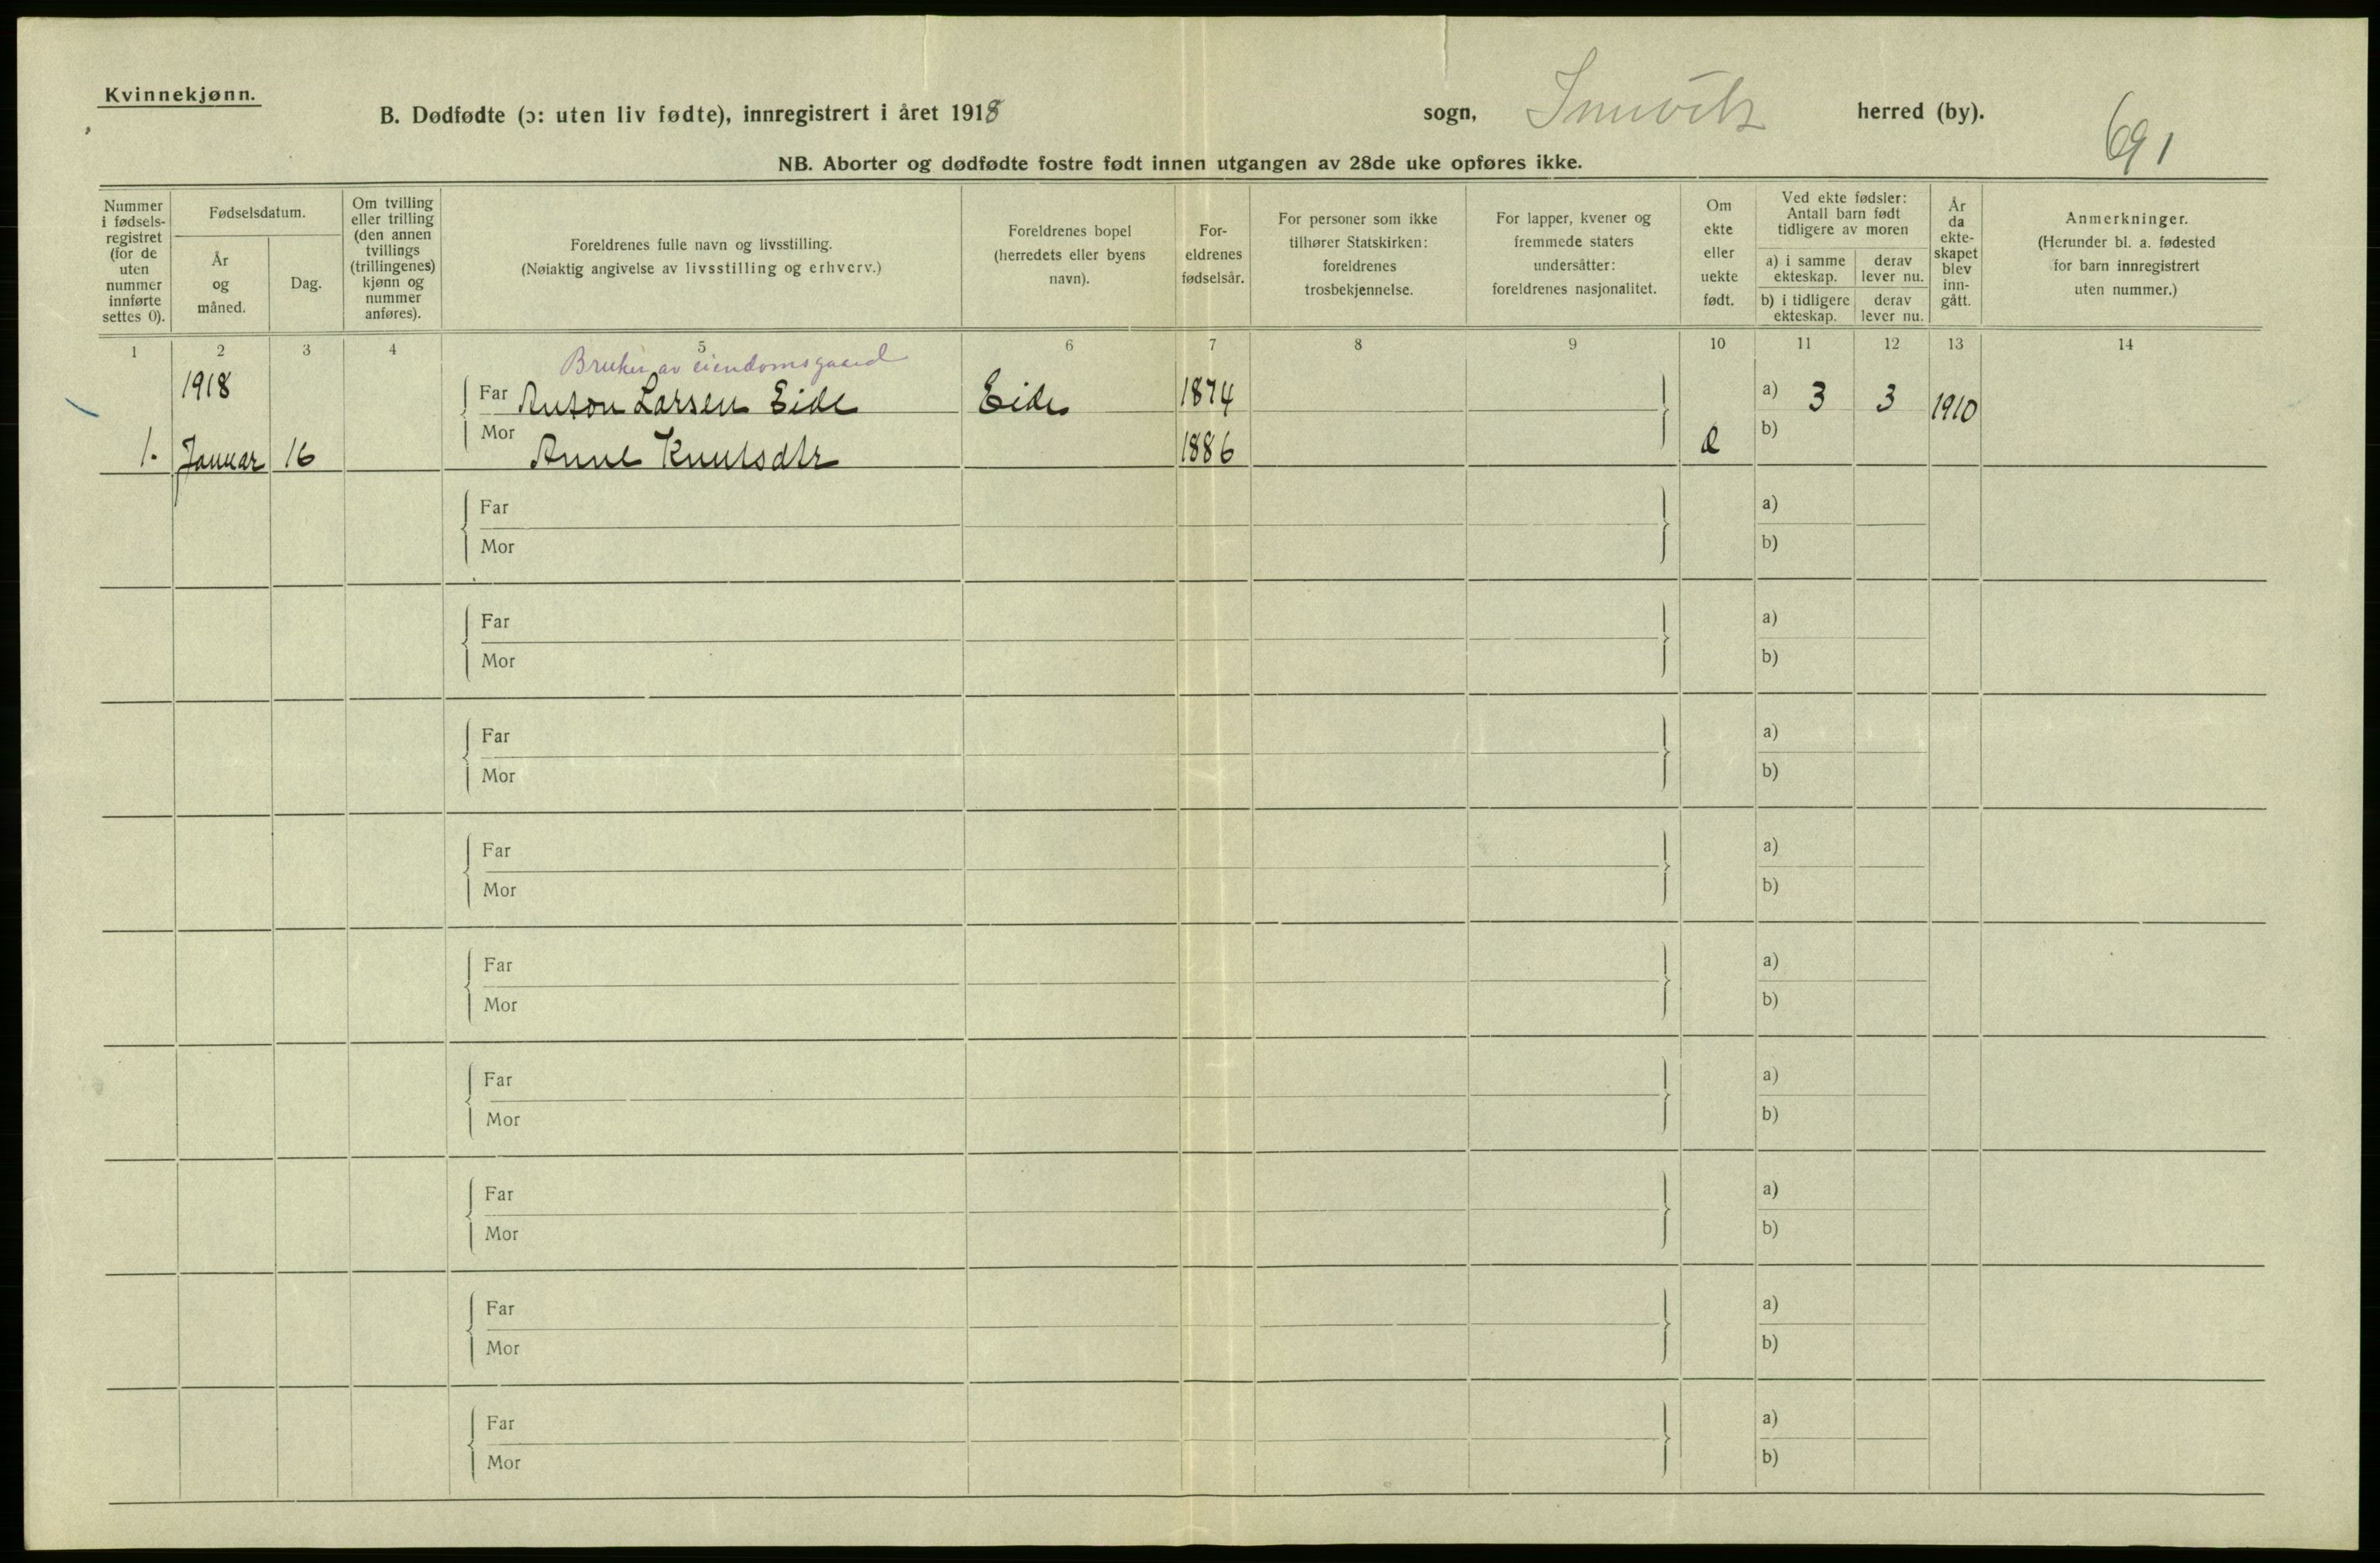 Kvinnekjønn.
B. Dødfødte (ɔ: uten liv fødte), innregistrert i året 1918 sogn, Innvik herred (by).
691
NB. Aborter og dødfødte fostre født innen utgangen av 28de uke opføres ikke.
Nummer i fødsels-registret (for de uten nummer innførte settes 0).
Fødselsdatum.
År og måned.
Dag.
Om tvilling eller trilling (den annen tvillings (trillingenes) kjønn og nummer anføres).
Foreldrenes fulle navn og livsstilling.
(Nøiaktig angivelse av livsstilling og erhverv.)
Foreldrenes bopel (herredets eller byens navn).
For-eldrenes fødselsår.
For personer som ikke tilhører Statskirken: foreldrenes trosbekjennelse.
For lapper, kvener og fremmede staters undersåtter: foreldrenes nasjonalitet.
Om ekte eller uekte født.
Ved ekte fødsler: Antall barn født tidligere av moren
a) i samme ekteskap. derav lever nu.
b) i tidligere ekteskap. derav lever nu.
År da ekte-skapet blev inn-gått.
Anmerkninger.
(Herunder bl. a. fødested for barn innregistrert uten nummer.)
1 2 3 4 5 6 7 8 9 10 11 12 13 14
Bruker av eiendomsgaard
1918 Far Anton Larsen Eide Eide 1874 a) 3 3 1910
1. Januar 16 Mor Anne Knutsdtr 1886 e b)
Far a)
Mor b)
Far a)
Mor b)
Far a)
Mor b)
Far a)
Mor b)
Far a)
Mor b)
Far a)
Mor b)
Far a)
Mor b)
Far a)
Mor b)
Far a)
Mor b)